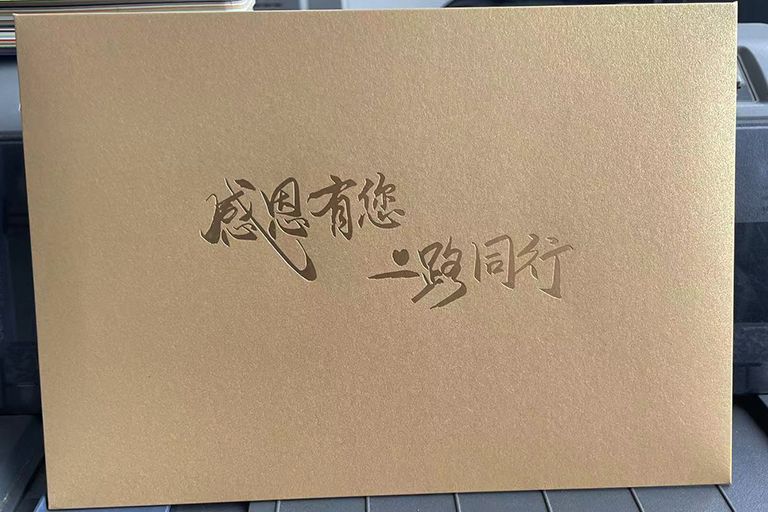 感恩有您
一路同行